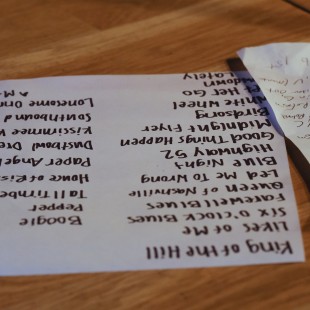 King of the Hill
Likes of Me
Six O'Clock Blues
Farewell Blues
Queen of Nashville
Led Me To Wrong
Blue Night
Highway 52
Good Things Happen
Midnight Flyer
Birdsong
White Wheel
Her Go
Lately
Boogie
Pepper
Tall Timbe
House of Ris
Paper Angel
Dustbowl Dre
Kissimmee
Southbound
Lonesome
A M